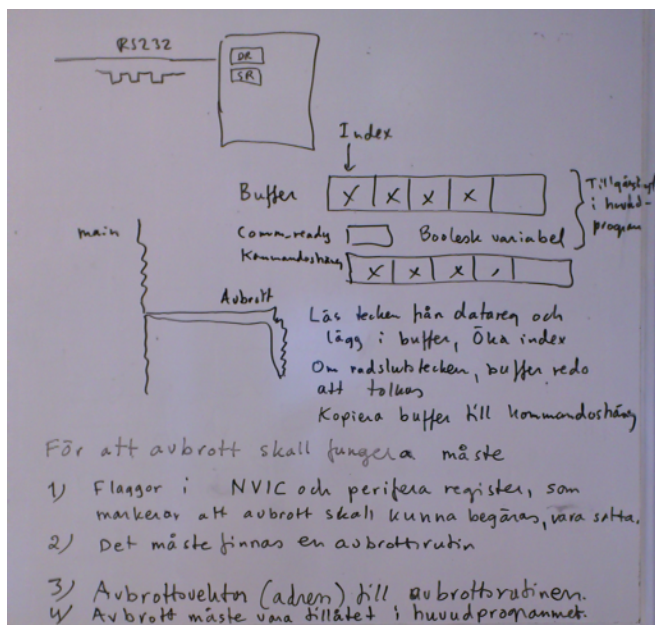 RS232
DR
SR
Index
Buffer X X X X
Tillgängligt
i huvud-
program
main
Comm_ready Boolesk variabel
Kommandosträng X X X ,
Avbrott
Läs tecken från datareg och
lägg i buffer, Öka index
Om radslutstecken, buffer redo
att tolkas
Kopiera buffer till kommandosträng
För att avbrott skall fungera måste
1) Flaggor i NVIC och perifera register, som
markerar att avbrott skall kunna begäras, vara satta.
2) Det måste finnas en avbrottsrutin
3) Avbrottsvektor (adress) till avbrottsrutinen.
4) Avbrott måste vara tillåtet i huvudprogrammet.